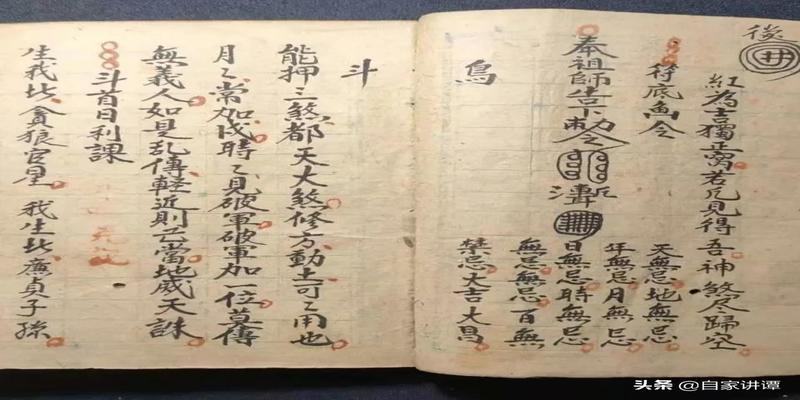 後
紅為吉獨正若凡見得吾神煞尽歸空
符底画令
奉祖師告下勅令
天無忌地無忌
年無忌月無忌
日無忌時無忌
無忌無忌百無
禁忌大吉大昌
斗
能押三煞都天大煞修方動土可〻用也
月〻常加戌時〻見破軍破軍加一位莫傳
無義人如見乱傳輕近則己當地威天誅
斗首日利課
生我比貪狼官星 我生比廉貞子孫
头条 @自家讲谭